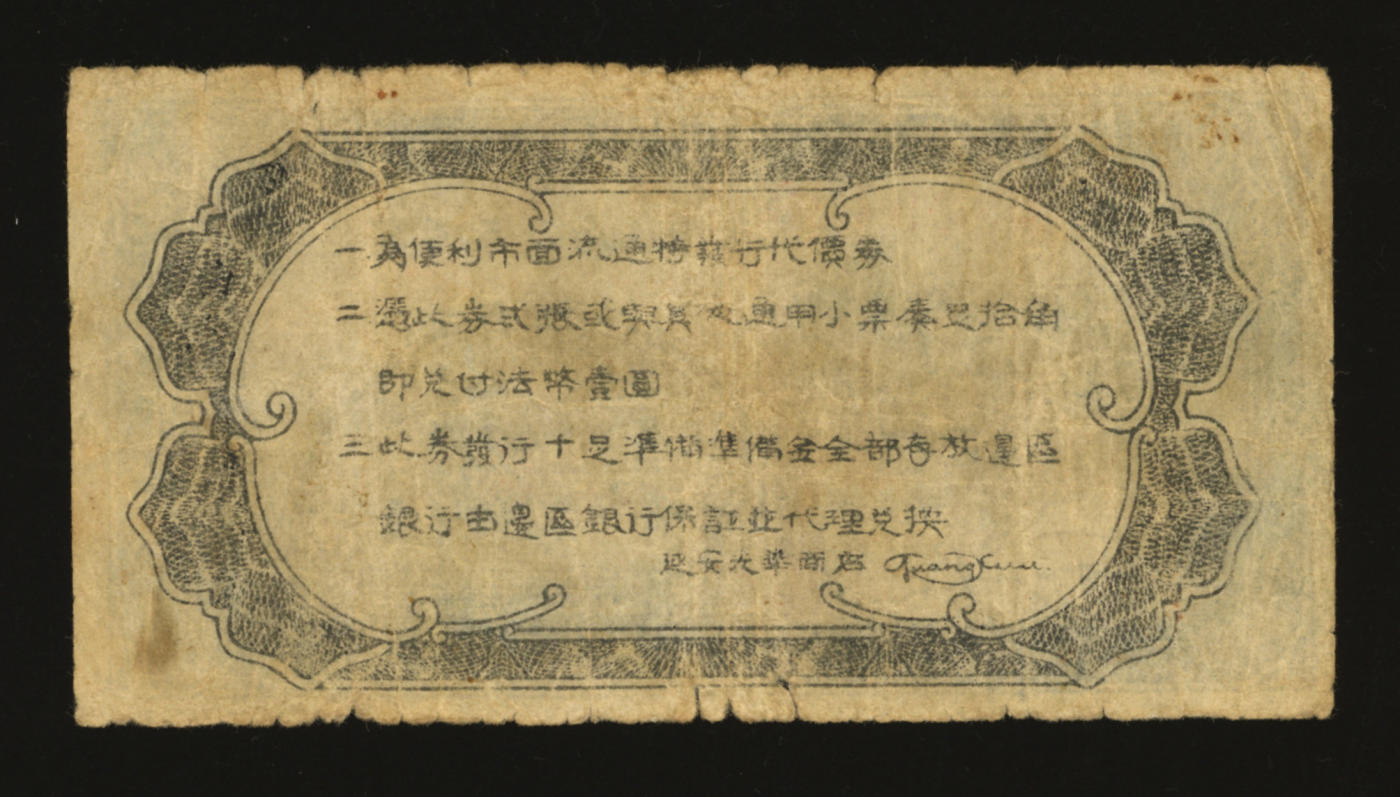 一 為便利市面流通特發行代價券
二 憑此券弍張或與其他通用小票湊足拾角
即兌付法幣壹圓
三 此券發行十足準備準備金全部存放邊區
銀行由邊區銀行保証並代理兌換
延安光華商店